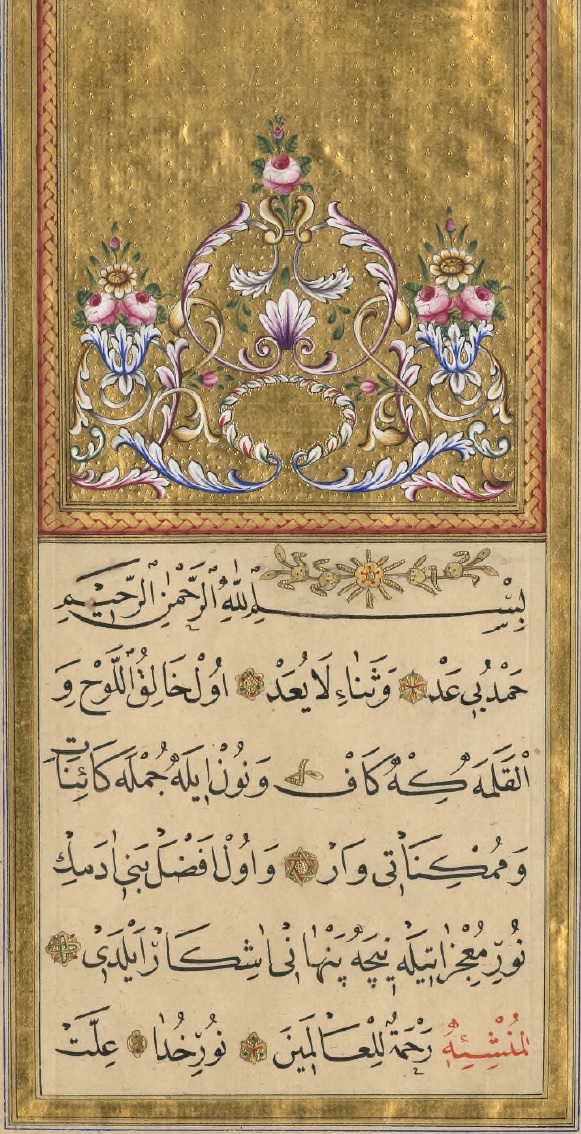 بِسْمِ اللّٰهِ الرَّحْمٰنِ الرَّحِيمِ
حَمْدِ بِى عَدْ وَثَنَاءِ لَا يُعَدْ اُولْ خَالِقُ اللَّوْحْ وَ
الْقَلَمَه كِه كَافْ وَنُونْ اِيلَه جُمْلَه كَائِنَاتْ
وَمُمْكِنَاتِى وَارْ وَاُولْ اَفْضَلْ بَنِى اٰدَمِكْ
نُورِ مُعْجِزَاتِيلَه نِيچَه پِنْهَانِى اٰشِكَارْ اَيْلَدِى
رَحْمَةً لِلْعَالَمِينَ نُورِ خُدَا عِلَّتْ